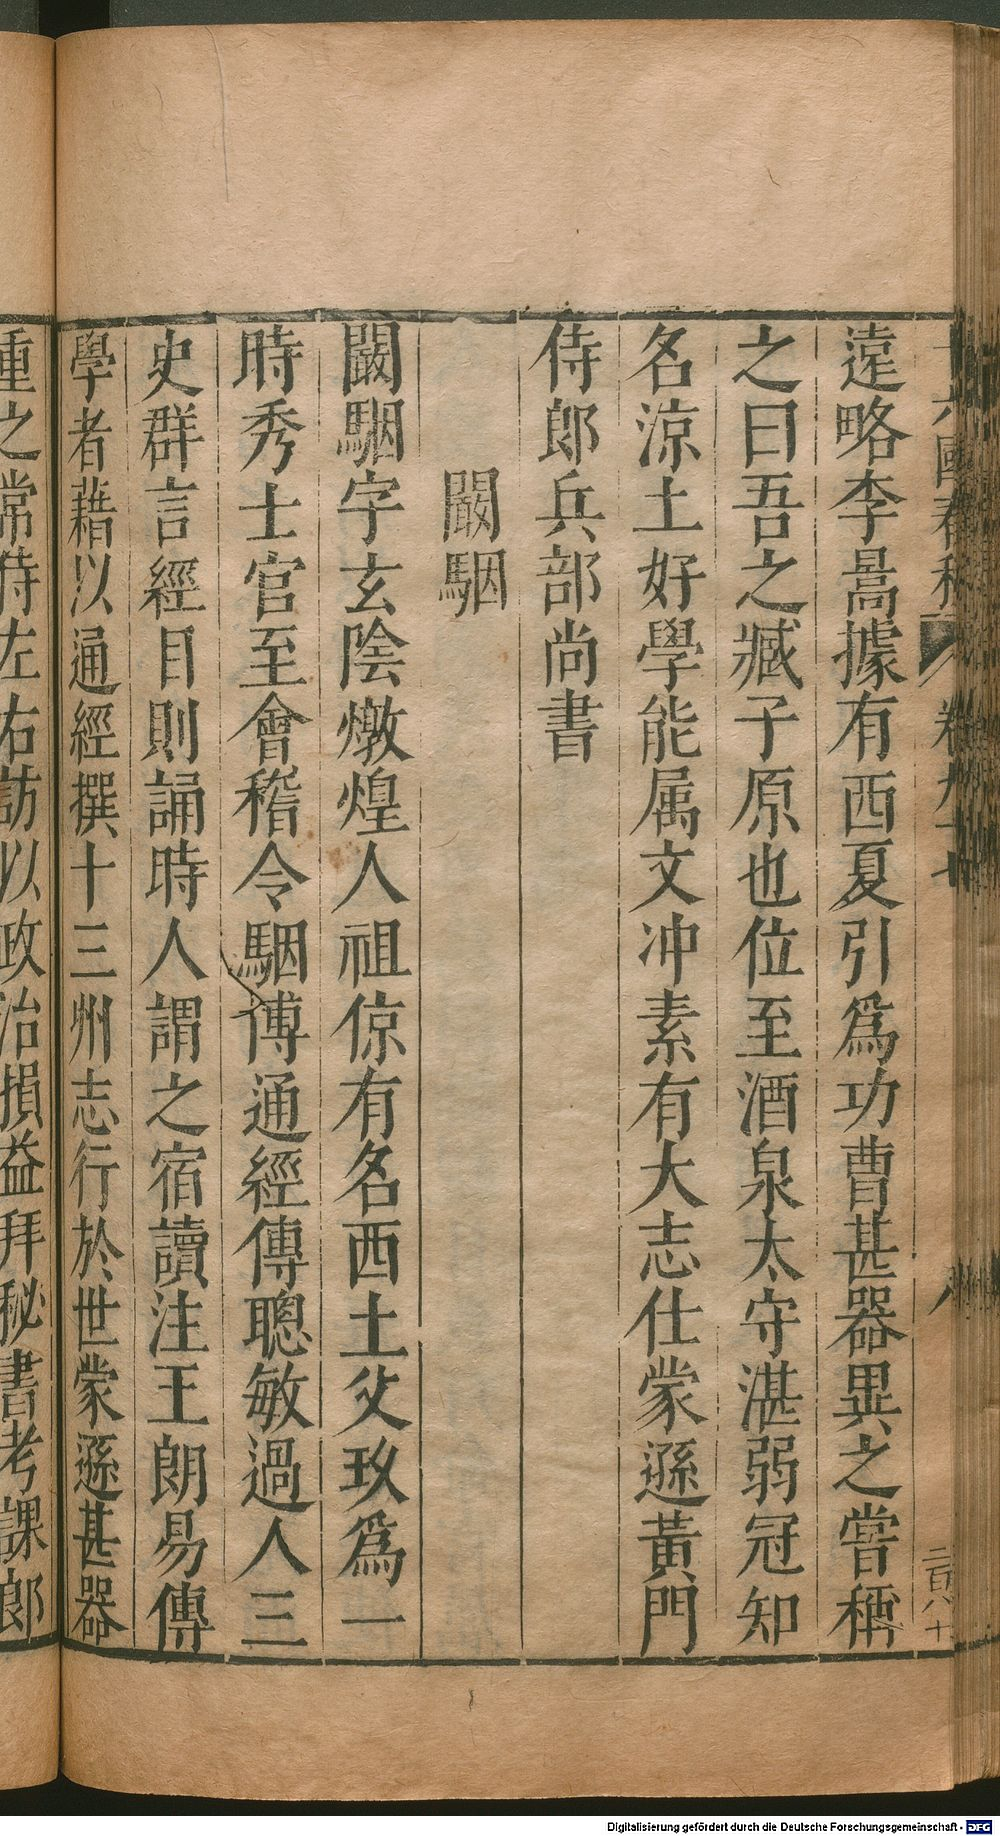 十六國春秋 卷九十七 八
遠略李暠據有西夏引爲功曹甚器異之嘗稱
之曰吾之臧子原也位至酒泉太守湛弱冠知
名涼土好學能属文冲素有大志仕蒙遜黃門
侍郎兵部尚書
闞駰
闞駰字玄陰燉煌人祖倞有名西土父玖爲一
時秀士官至會稽令駰博通經傳聰敏過人三
史群言經目則誦時人謂之宿讀注王朗易傳
學者藉以通經撰十三州志行於世蒙遜甚器
重之常侍左右訪以政治損益拜秘書考課郎
Digitalisierung gefördert durch die Deutsche Forschungsgemeinschaft - DFG